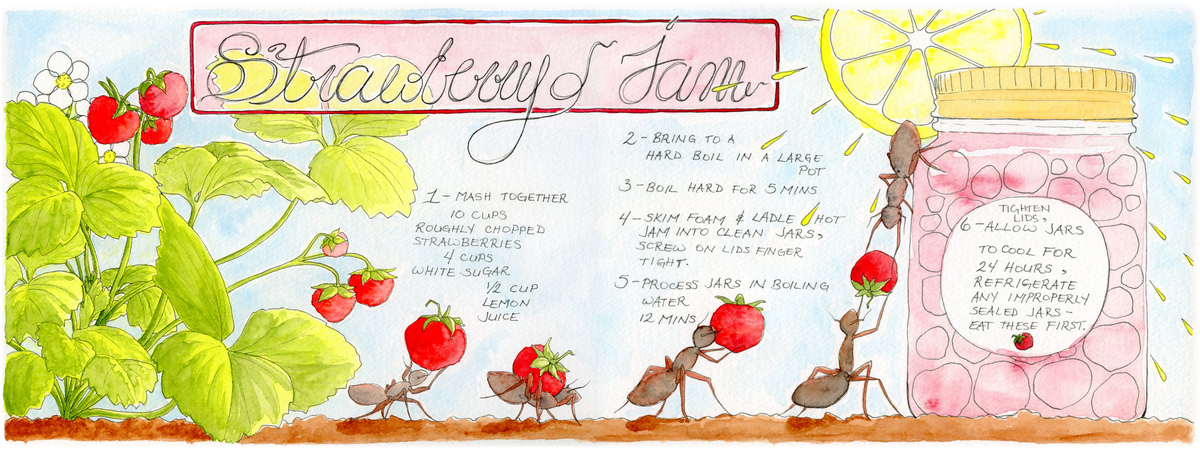 Strawberry Jam
1 - MASH TOGETHER
10 CUPS
ROUGHLY CHOPPED
STRAWBERRIES
4 CUPS
WHITE SUGAR
1/2 CUP
LEMON
JUICE
2 - BRING TO A
HARD BOIL IN A LARGE
POT
3 - BOIL HARD FOR 5 MINS
4 - SKIM FOAM & LADLE HOT
JAM INTO CLEAN JARS,
SCREW ON LIDS FINGER
TIGHT.
5 - PROCESS JARS IN BOILING
WATER
12 MINS
TIGHTEN
LIDS,
6 - ALLOW JARS
TO COOL FOR
24 HOURS,
REFRIGERATE
ANY IMPROPERLY
SEALED JARS -
EAT THESE FIRST.